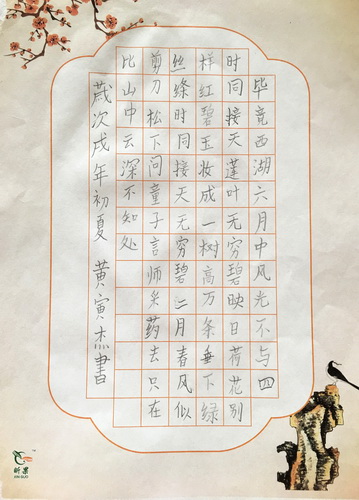 毕竟西湖六月中风光不与四
时同接天莲叶无穷碧映日荷花别
样红碧玉妆成一树高万条垂下绿
丝绦时同接天无穷碧二月春风似
剪刀松下问童子言师采药去只在
比山中云深不知处
歲次戌年初夏 黄寅杰書
昕果
XIN GUO